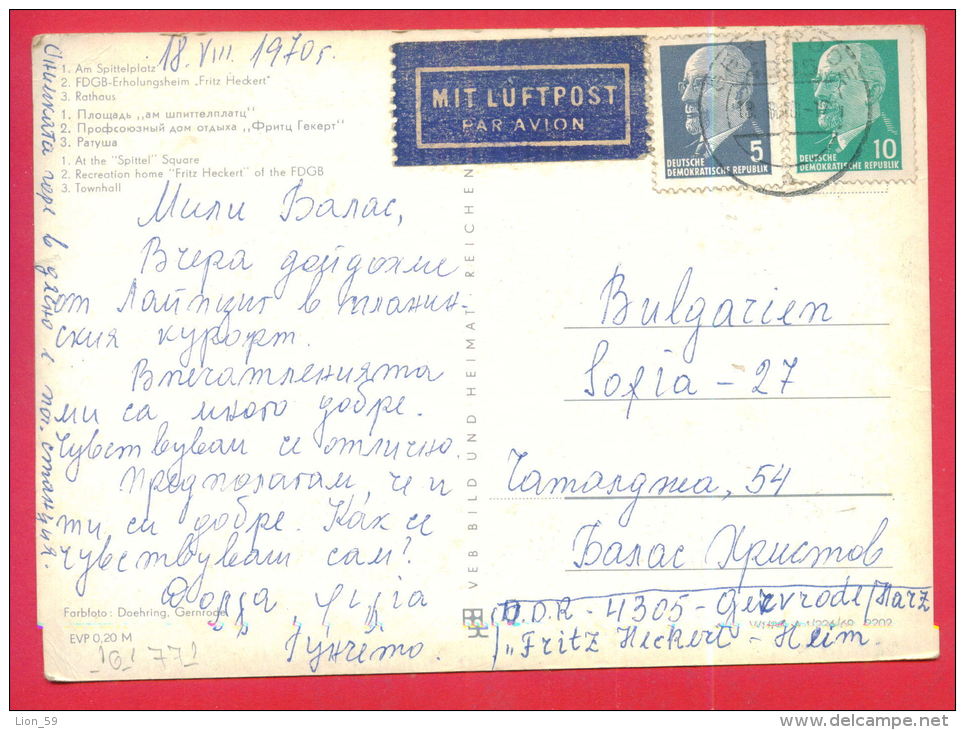 18. VIII. 1970 г.
1. Am Spittelplatz
2. FDGB-Erholungsheim "Fritz Heckert"
3. Rathaus
1. Площадь „ам шпиттелплатц"
2. Профсоюзный дом отдыха „Фритц Гекерт"
3. Ратуша
1. At the "Spittel" Square
2. Recreation home "Fritz Heckert" of the FDGB
3. Townhall
MIT LUFTPOST
PAR AVION
5
DEUTSCHE
DEMOKRATISCHE REPUBLIK
10
DEUTSCHE
DEMOKRATISCHE REPUBLIK
Мили Балас,
Вчера дойдохме
от Лайпциг в планин-
ския курорт.
Впечатленията
ми са много добре.
Чувствувам се отлично.
Предполагам, че и
ти си добре. Как се
чувствуваш сам?
Гунчето.
горе в дясно е
станция.
Farbfoto: Doehring, Gernrode
EVP 0,20 M
161 771
VEB BILD UND HEIMAT REICHEN
Bulgarien
Sofia - 27
Чаталджа, 54
Балас Христов
D.D.R - 4305 - Gernrode/Harz
"Fritz Heckert" - Heim.
Lion_59
www.delcampe.net